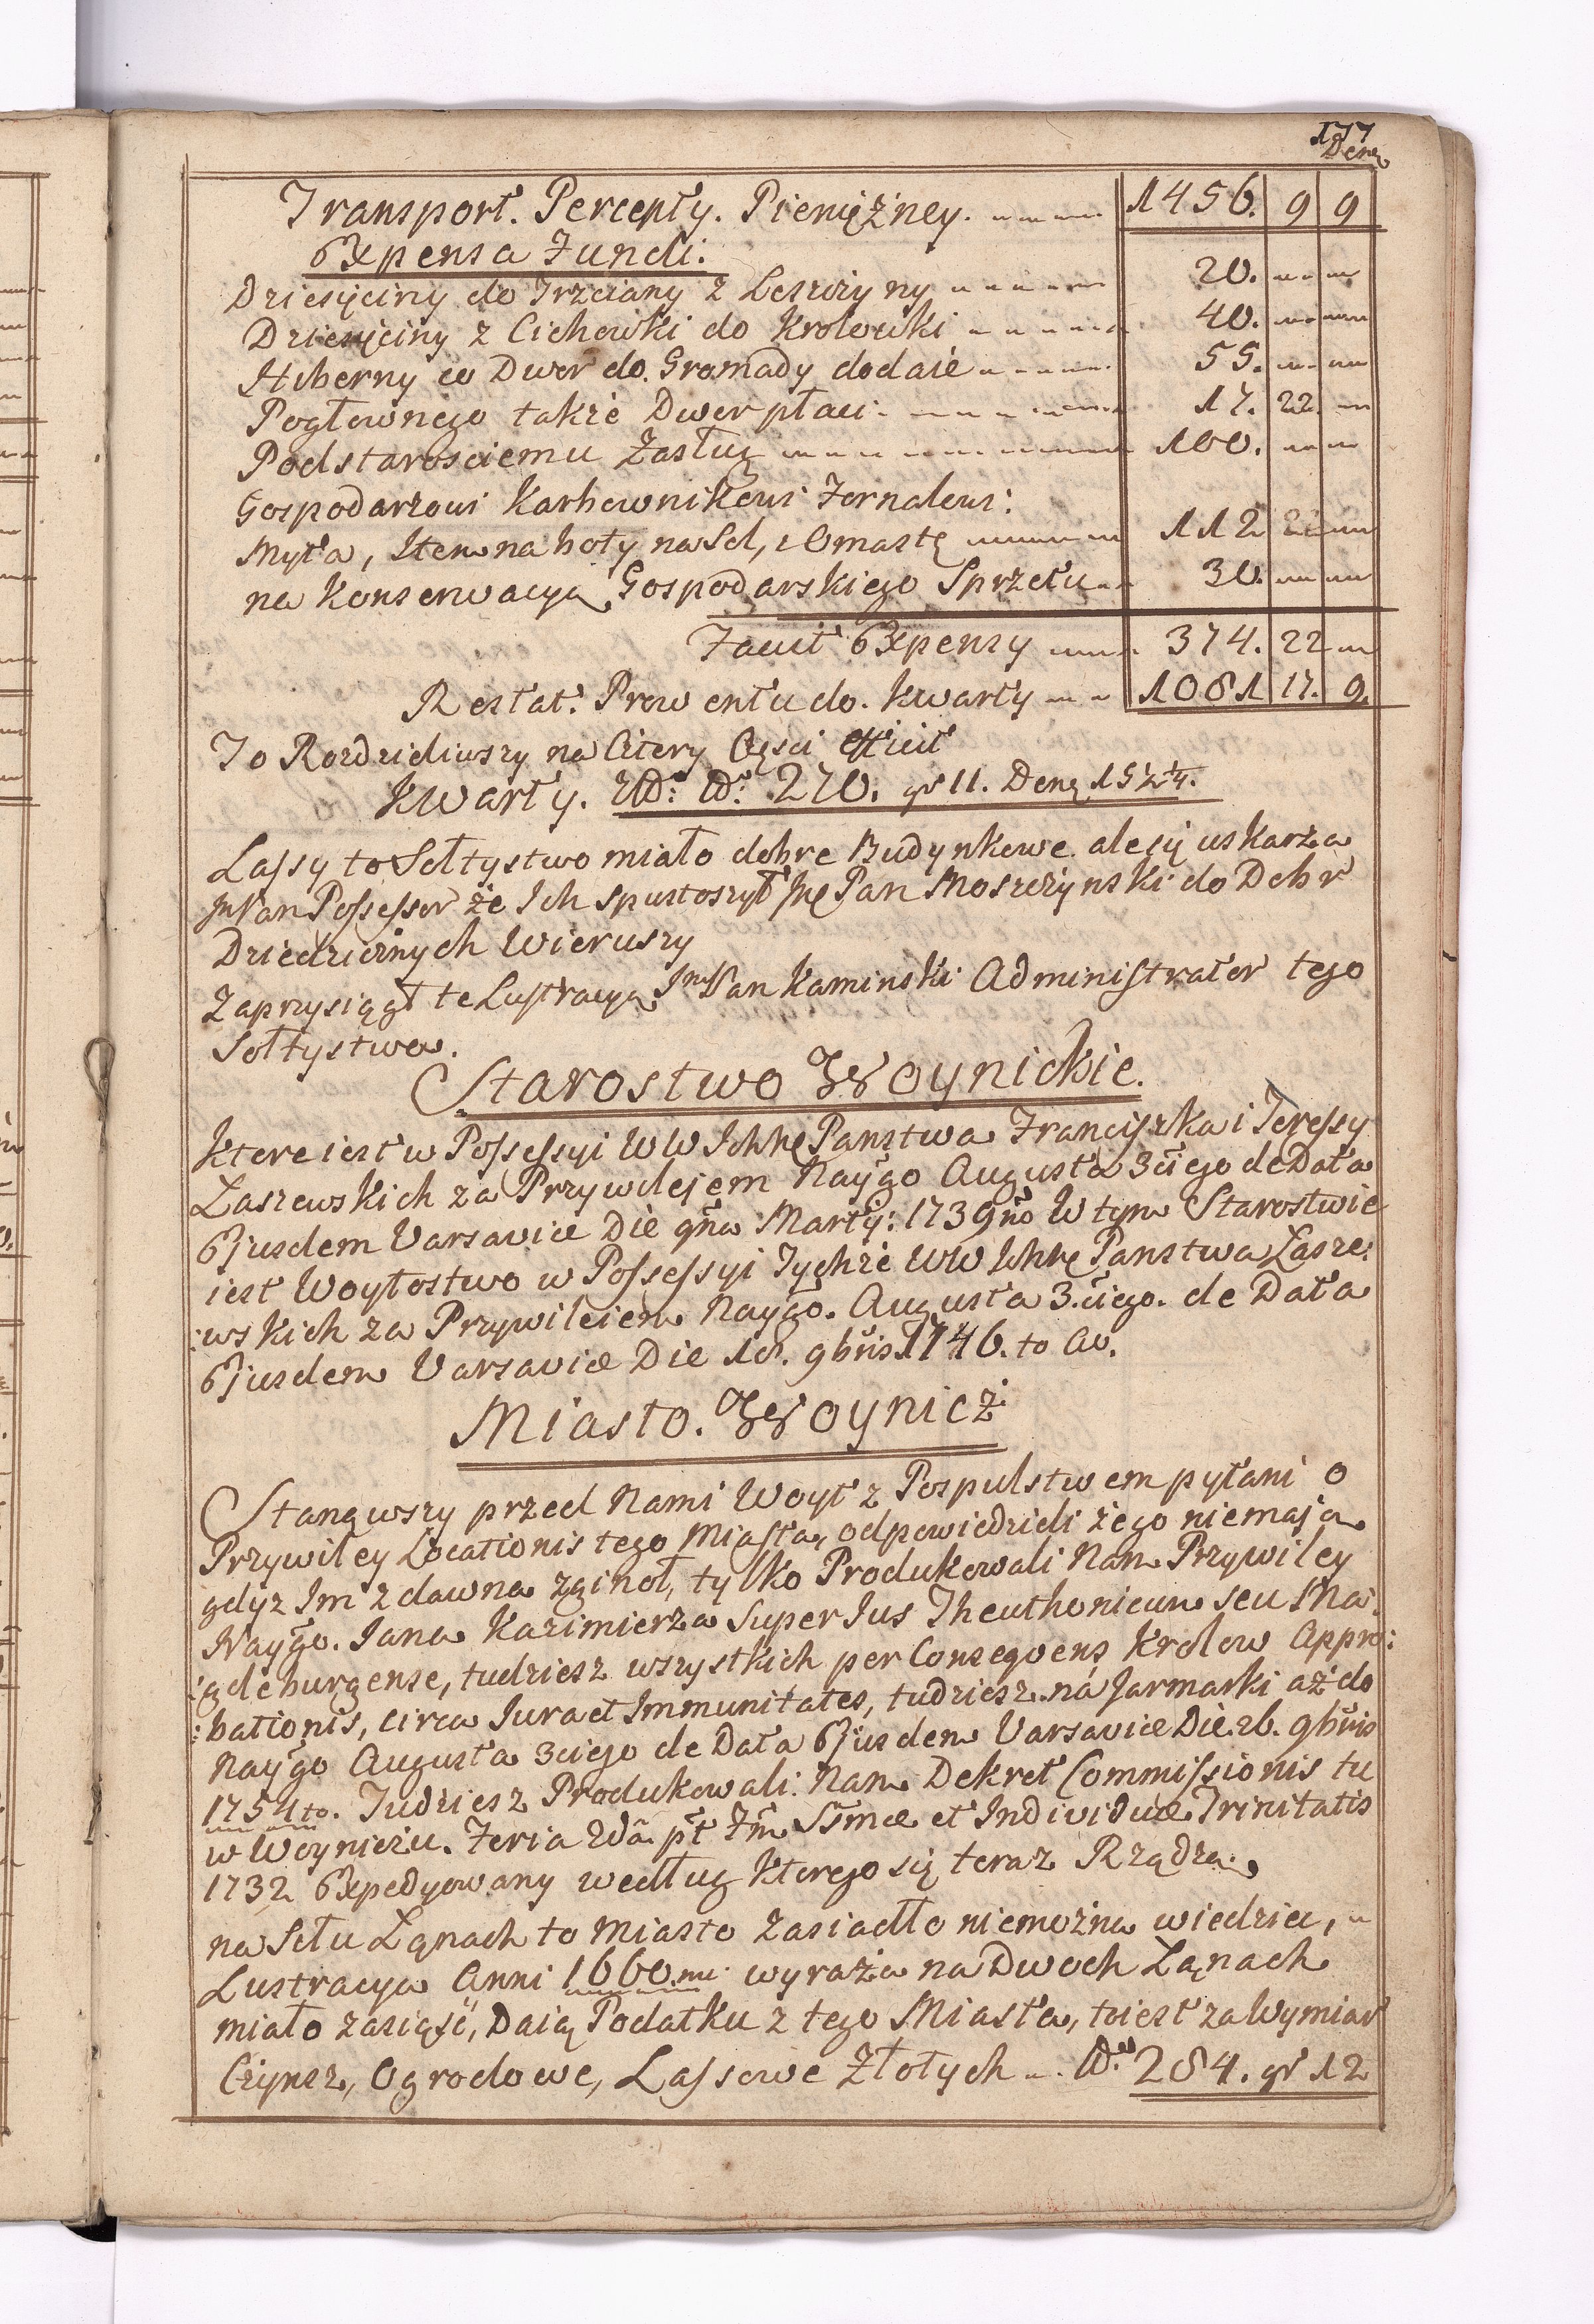 177
Den.
Transport. Percepty. Pieniężney. 1456. 9 9
Expensa Fundi.
Dziesięciny do Trzciany z Leszczyny 20.
Dziesięciny z Cichowki do Krolowki 40.
Hiberny co Dwor do Gromady dodaie 55.
Pogłownego także Dwor płaci 17. 22.
Podstarosciemu Zasług 100.
Gospodarzowi Karbownikowi Fornalowi:
Myta, Item na boty na Sol, i Omastę 112
na Konserwacyą Gospodarskiego Sprzetu 30.
Facit Expensy 374. 22
Restat. Prowentu do. Kwarty 1081 17. 9.
To Rozdzieliwszy na Cztery Częsci efficit
Kwarty. 270. gr 11. Den. 15 2/4.
Lassy to Sołtystwo miało dobre Budynkowe. ale się uskarza
Jm Pan Possessor że Ich spustoszył Jmć Pan Moszczynski do Dobr
Dziedzicznych Wieruszy
Zaprzysiągł te Lustracyą Jmć Pan Kaminski Administrator tego
Sołtystwa.
Starostwo Woynickie.
Ktore iest w Possessyi WW Ichmć Panstwa Franciszka i Teressy
Łaszewskich za Przywilejem Naygo Augusta 3ciego de Data
Ejusdem Varsaviæ Die 9na Martij: 1739no W tym Starostwie
iest Woytostwo w Possessyi Tychże WW Ichmć Panstwa Łasze:
:wskich za Przywileiem Naygo. Augusta 3.ciego. de Data
Ejusdem Varsaviæ Die 18. 9bris 1746. to Av.
Miasto. Woynicz
Stanąwszy przed Nami Woyt z Pospulstwem pytani o
Przywiley Locationis tego Miasta, odpowiedzieli że go niemają
gdyz Im z dawna zginoł, tylko Produkowali Nam Przywiley
Naygo. Jana Kazimierza Super Jus Theuthonicum seu Ma:
:gdeburgense, tudziesz wszystkich per Conseqvens Krolow Appro:
:bationis, circa Jura et Immunitates, tudziesz na Jarmarki aż do
Naygo Augusta 3ciego de Data Ejusdem Varsaviæ Die. 26. 9bris
1754to. Tudziesz Produkowali. Nam Dekret Commissionis tu
w Woyniczu. Feria 2da pt Fm SSmæ et Individuæ Trinitatis
1732 Expedyowany według ktorego się teraz Rządzą.
na Sełu Łanach to Miasto Zasiadło niemożna wiedziec,
Lustracya Anni 1660mi wyraża na Dwoch Łanach
miało zasiąść, Daią Podatku z tego Miasta, to iest za Wymiar
Czynsz, Ogrodowe, Lassowe Złotych 284. gr 12